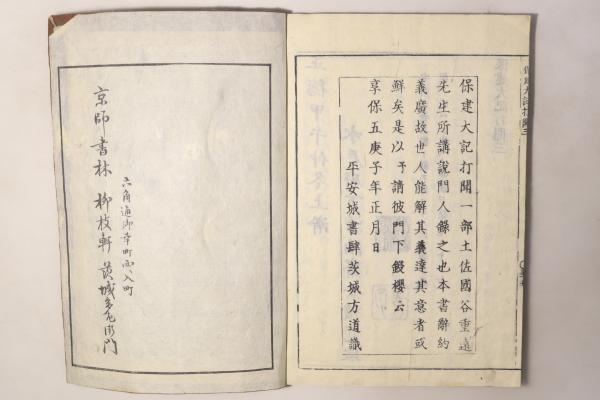 保建大記打聞一部土佐國谷重遠
先生所講說門人錄之也本書辭約
義廣故世人能解其義達其意者或
鮮矣是以予請彼門下鋟櫻云
享保五庚子年正月日
平安城書肆茨城方道識
六角通御幸町西ヘ入町
京師書林 柳枝軒 茨城多左衛門